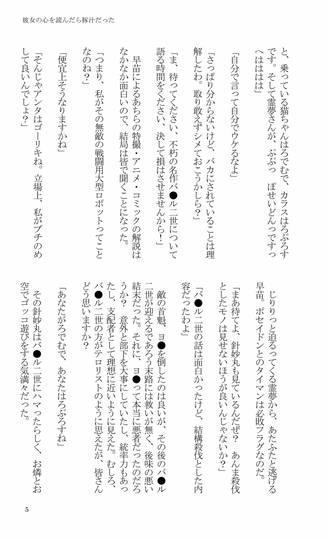 彼女の心を読んだら豚汁だった
と、乗っている猫ちゃんはろでむで、カラスはろぷろす
です。そして霊夢さんが、ぷぷっ　ぽせいどんっですっ
へはははは」
「自分で言って自分でウケるなよ」
「さっぱり分からないけど、バカにされていることは理
解したわ。取り敢えずシメておこうかしら？」
「ま、待ってください、不朽の名作バ●ル二世について
語る時間をください、決して損はさせませんから！」
早苗によるあちらの特撮・アニメ・コミックの解説は
なかなか面白いので、結局は皆で聞くことになった。
「つまり、私がその無敵の戦闘用大型ロボットってこと
なのね？」
「便宜上そうなりますかね」
「そんじゃアンタはゴーリキね。立場上、私がブチのめ
して良いんでしょ？」
じりりっと迫るってくる霊夢から、あたふたと逃げる
早苗。ポセイドンとのタイマンは必敗フラグなのだ。
「まあ待てよ、針妙丸も見ているんだぜ？　あんま殺伐
としたモノは見せないほうが良いんじゃないか？」
「バ●ル二世の話は面白かったけど、結構殺伐とした内
容だったわよ」
敵の首魁、ヨ●を倒したのは良いが、その後のバ●ル
二世が迎えるであろう末路には救いが無く、後味の悪い
結末だった。それに、ヨ●って本当に悪者だったのだろ
うか？　意外と部下を大事にしていたし、統率力もあっ
たし、支配者として理想に近いように見えた。むしろ、
バ●ル二世の方がテロリストのように思えたが、皆さん
どう思いますか？
「あなたがろでむで、あなたはろぷろすね」
その針妙丸はバ●ル二世にハマったらしく、お燐とお
空でゴッコ遊びをする気満々だった。
5